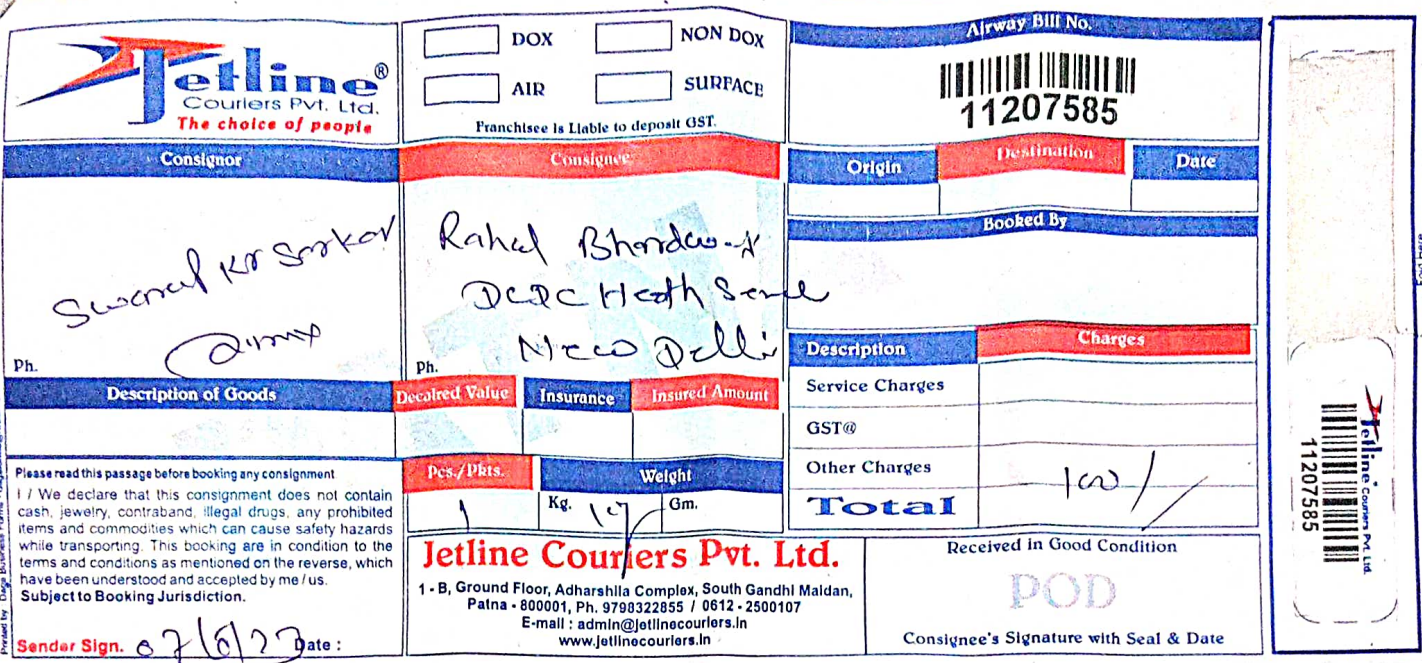 Jetline®
Couriers Pvt. Ltd.
The choice of people
DOX
NON DOX
AIR
SURFACE
Franchisee is Liable to deposit GST.
Airway Bill No.
11207585
Consignor
Consignee
Origin
Destination
Date
Swarnal Kr Sarkar
Ph.
Rahul
DCDC Heath
New Delhi
Ph.
Booked By
Description
Charges
Service Charges
GST@
Other Charges
Total
100/
Description of Goods
Decalred Value
Insurance
Insured Amount
Pcs./Pkts.
Weight
1
Kg.
Gm.
Please read this passage before booking any consignment
I / We declare that this consignment does not contain
cash, jewelry, contraband, illegal drugs, any prohibited
items and commodities which can cause safety hazards
while transporting. This booking are in condition to the
terms and conditions as mentioned on the reverse, which
have been understood and accepted by me / us.
Subject to Booking Jurisdiction.
Sender Sign. 07/6/23 Date :
Jetline Couriers Pvt. Ltd.
1 - B, Ground Floor, Adharshila Complex, South Gandhi Maidan,
Patna - 800001, Ph. 9798322855 / 0612 - 2500107
E-mail : admin@jetlinecouriers.in
www.jetlinecouriers.in
Received in Good Condition
POD
Consignee's Signature with Seal & Date
Jetline Couriers Pvt. Ltd.
11207585